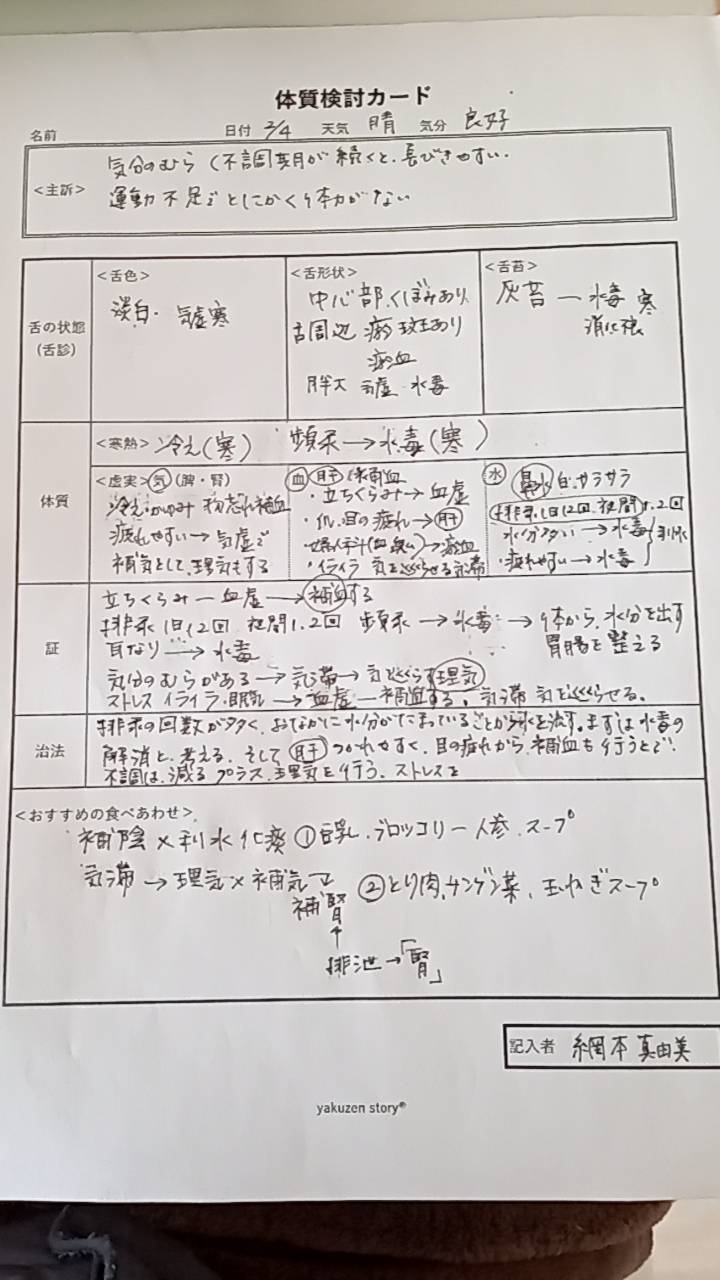 体質検討カード
名前 日付 2/4 天気 晴 気分 良好
<主訴>
気分のむら(不調期が続くと、喜びきやすい.
運動不足でとにかく体力がない
舌の状態
(舌診)
<舌色>
淡白・気虚寒
<舌形状>
中心部、くぼみあり
舌周辺 瘀斑あり
瘀血
胖大 気虚 水毒
<舌苔>
灰苔 ー 水毒 寒
体質
<寒熱> 冷え(寒) 頻尿→水毒(寒)
<虚実> 気 (脾・腎)
冷え・かゆみ 物忘れ 補血
疲れやすい→気虚で
補気として、理気もする
血 肝 補血
・立ちくらみ→血虚
目の疲れ→肝
・イライラ 気を巡らせる 気滞
水 鼻水 白・サラサラ
排尿1日12回、夜間1.2回
水分多い→水毒
・疲れやすい→水毒
利水
証
立ちくらみー血虚→補血する
排尿1日12回 夜間1.2回 頻尿→水毒→体から、水分を出す
耳なり→水毒 胃腸を整える
気分のむらがある→気滞→気を巡らす理気
ストレス イライラ・眠気→血虚ー補血する、気滞 気を巡らせる。
治法
排尿の回数が多く、おなかに水分がたまっていることから水を流す。まずは水毒の
解消と、考える、そして肝つかれやすく、目の疲れから、補血も行うとで、
不調は、減る プラス、理気を行う、ストレスを
<おすすめの食べあわせ>
補陰×利水化痰 ①豆乳、ブロッコリー人参、スープ
気滞→理気×補気で ②とり肉、チンゲン菜、玉ねぎスープ
補腎
排泄→「腎」
記入者 網本 真由美
yakuzen story®